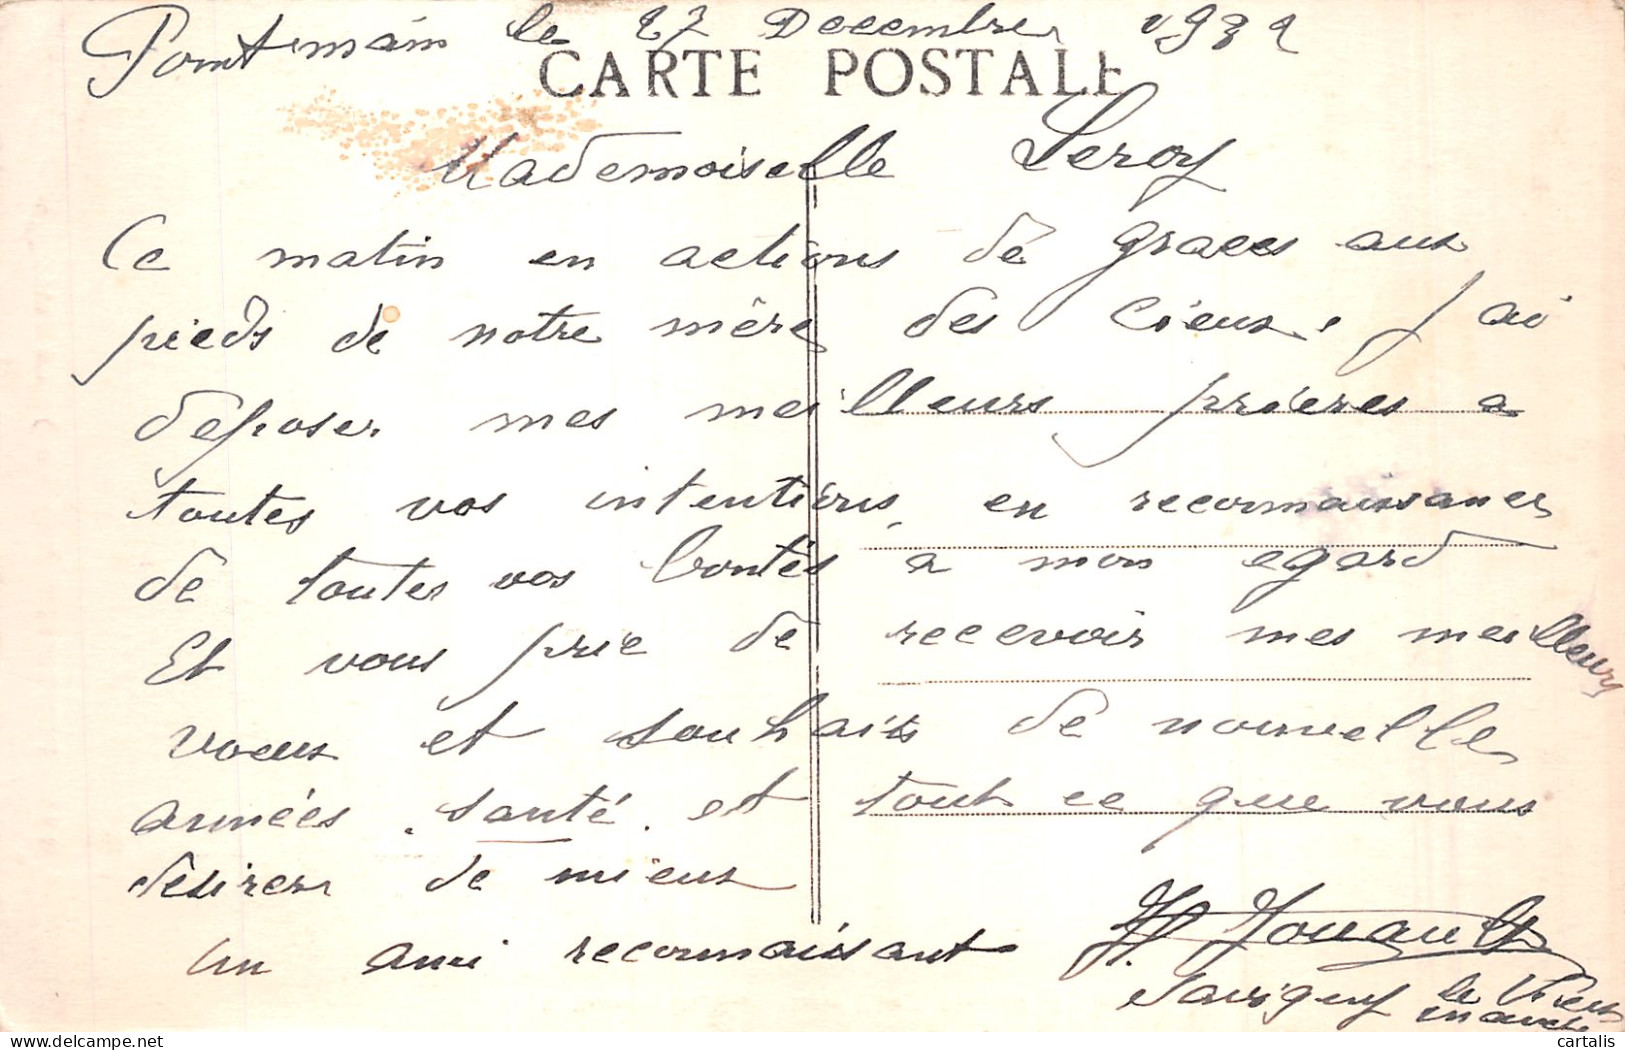 Pontmain le 27 Decembre 1932
CARTE POSTALE
Mademoiselle Leroy
Ce matin en actions de graces aux
pieds de notre mère des Cieux, j'ai
déposer mes meilleurs prières a
toutes vos intentions, en reconnaissances
de toutes vos bontés a mon egard
Et vous prie de recevoir mes meilleurs
voeux et souhaits de nouvelle
années, santé. et tout ce que vous
désirez de mieux
un ami reconnaissant H. Jouault
Savigny le Vieux
Manche
cartalis